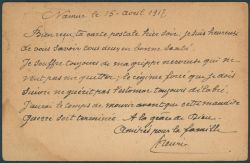 Namur le 15 avril 1917
Bien reçu ta carte postale hier soir, je suis heureuse
de vous savoir tous deux en bonne santé.
Je souffre toujours de ma grippe nerveuse qui ne
veut pas me quitter. le régime forcé que je dois
suivre ne guérit pas l'estomac toujours délabré.
J'aurai le temps de mourir avant que cette maudite
guerre soit terminée. A la grâce de Dieu.
Amitiés pour la famille